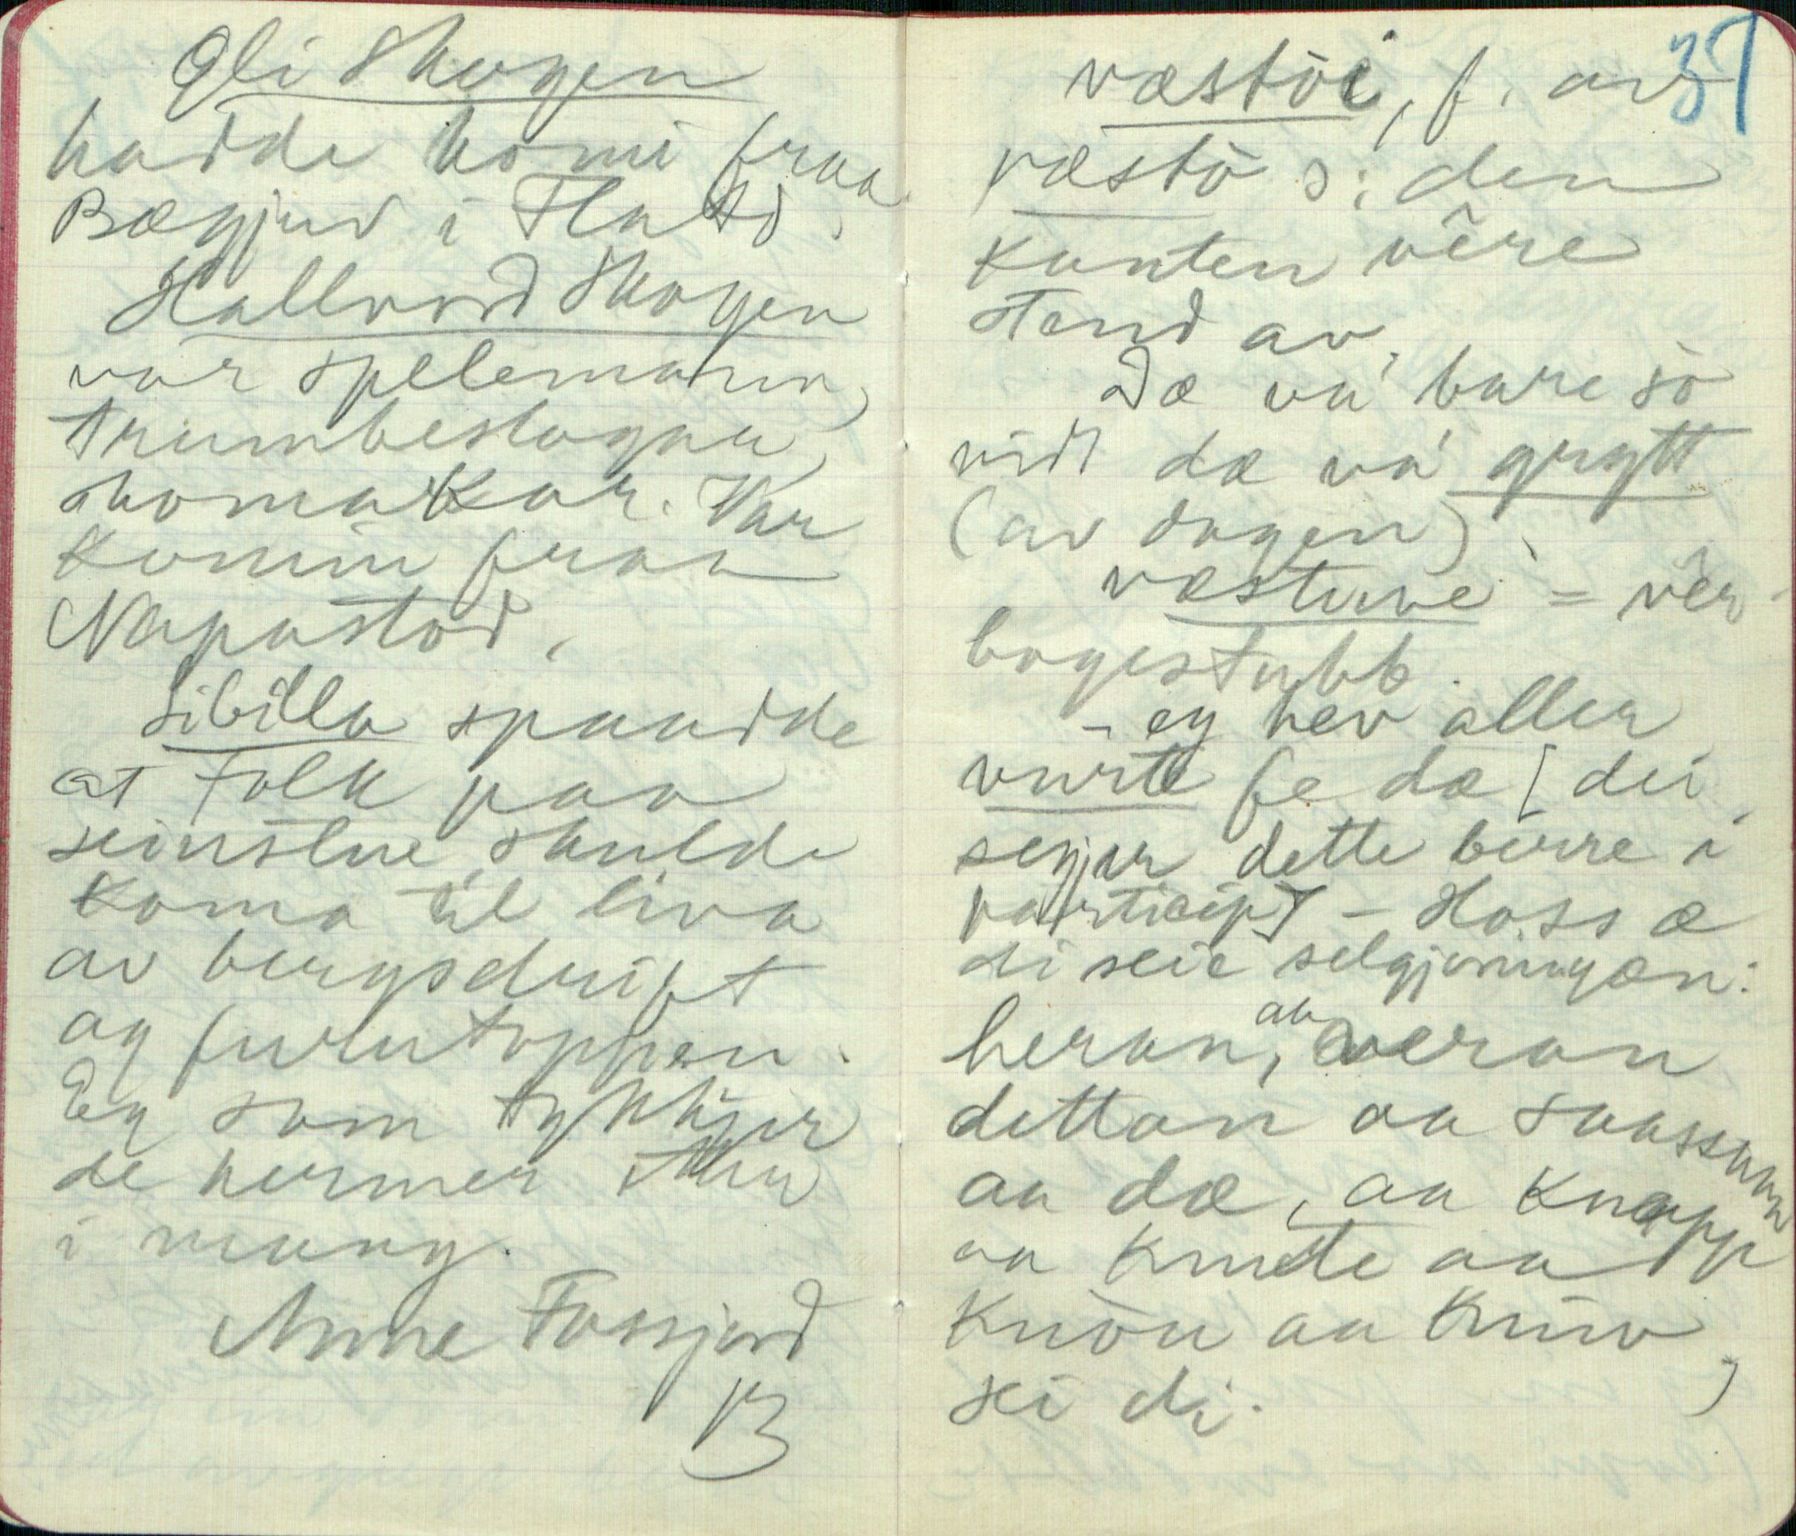 Oli Skogen
hadde komi fraa
Bægjuv i Flatd.
Hallvord Skogen
var spelemann,
trumbeslagar,
skomakar. Var
komin fraa
Napastod.
Sibilla spaadde
at folk paa
seinstne skulde
koma til liva
av bergsdrift
og furutoppen.
Eg som tykkjer
de nermer
i mang.
Anne Fossjord
B
37
væstöi, f. av
væstö ɔ: den
kanten vêre
stend av.
Dæ va' bare so
vidt dæ va' grytt
(av dagen).
væstuve = vêr-
bogestubb.
- eg hev aller
vurte fe dæ [dei
segjer dette berre i
particip] - Hoss æ
di seie selgjeringæn:
heran, aa veran
dettan aa saassan
aa dæ, aa knapp
aa knute aa
knòu aa knìv,
sei di.